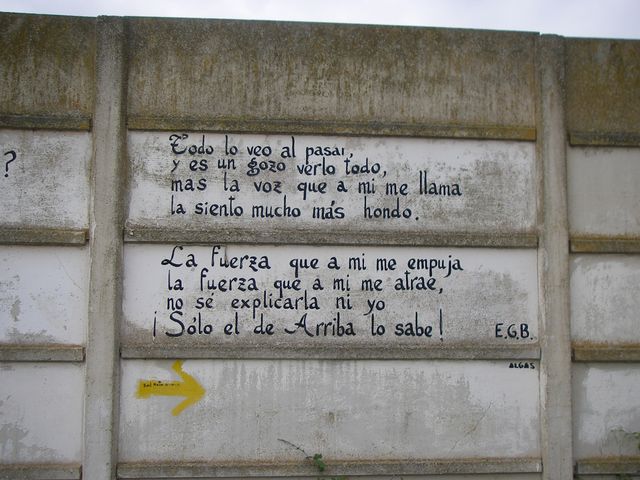 ?
Todo lo veo al pasar,
y es un gozo verlo todo,
mas la voz que a mi me llama
la siento mucho más hondo.
La Fuerza que a mi me empuja
la fuerza que a mi me atrae,
no sé explicarla ni yo
¡Sólo el de Arriba lo sabe!
E.G.B.
ALGAS